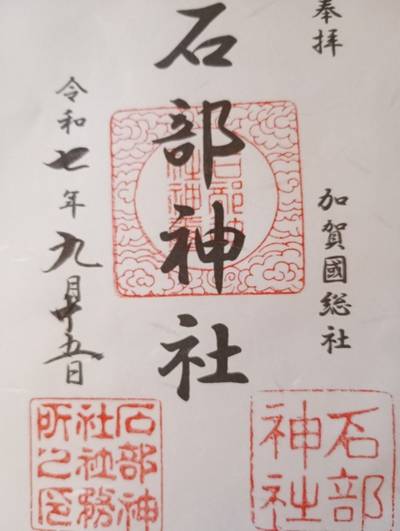 奉拝
加賀國総社
石部神社
令和七年九月十五日
石部
神社
石部神
社社務
所之印